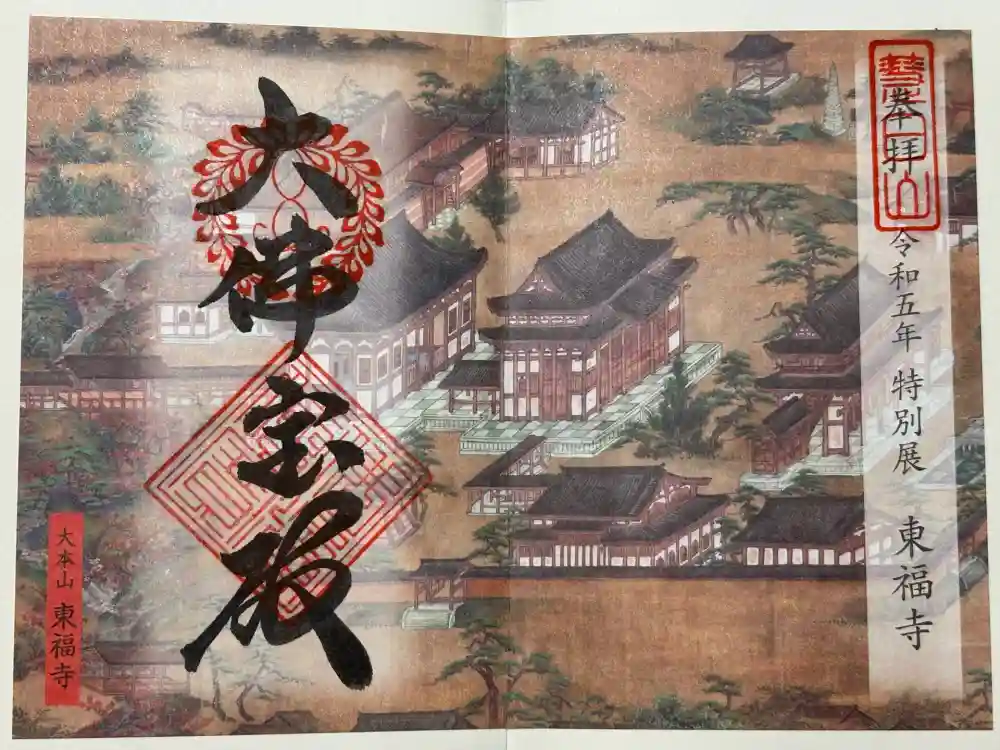 奉拝
令和五年 特別展 東福寺
慧日山
大佛宝殿
大本山 東福寺